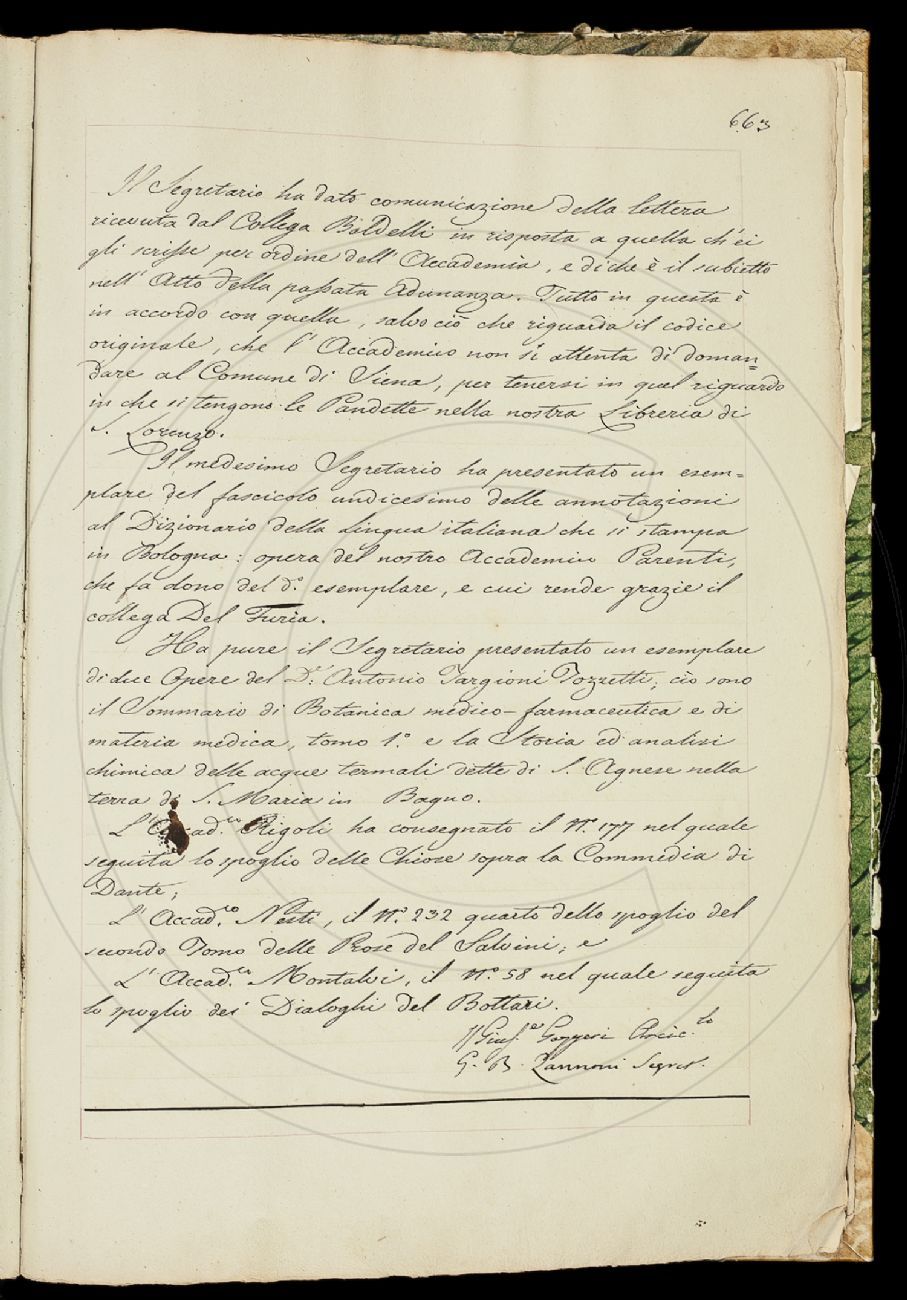 663
Il Segretario ha dato comunicazione della lettera
ricevuta dal Collega Baldelli in risposta a quella ch'ei
gli scrisse per ordine dell'Accademia, e di che è il subietto
nell'Atto della passata Adunanza. Tutto in questa è
in accordo con quella, salvo ciò che riguarda il codice
originale, che l'Accademico non si attenta di doman=
dare al Comune di Siena, per tenersi in quel riguardo
in che si tengono le Pandette nella nostra Libreria di
S. Lorenzo.
Il medesimo Segretario ha presentato un esem=
plare del fascicolo undicesimo delle annotazioni
al Dizionario della lingua italiana che si stampa
in Bologna: opera del nostro Accademico Parenti,
che fa dono del d.º esemplare, e cui rende grazie il
collega Del Furia.
Ha pure il Segretario presentato un esemplare
di due Opere del D.r Antonio Targioni Tozzetti; ciò sono
il Sommario di Botanica medico-farmaceutica e di
materia medica, tomo 1.º e la Storia ed analisi
chimica delle acque termali dette di S. Agnese nella
terra di S. Maria in Bagno.
L'Accad.co Rigoli ha consegnato il N.º 177 nel quale
seguita lo spoglio delle Chiose sopra la Commedia di
Dante;
L'Accad.co Nesti, il N.º 232 quarto dello spoglio del
secondo Tomo delle Prose del Salvini; e
L'Accad.co Montalvi, il N.º 58 nel quale seguita
lo spoglio dei Dialoghi del Bottari.
Gius.e Gazzeri Arcic.lo
G. B. Zannoni Segret.